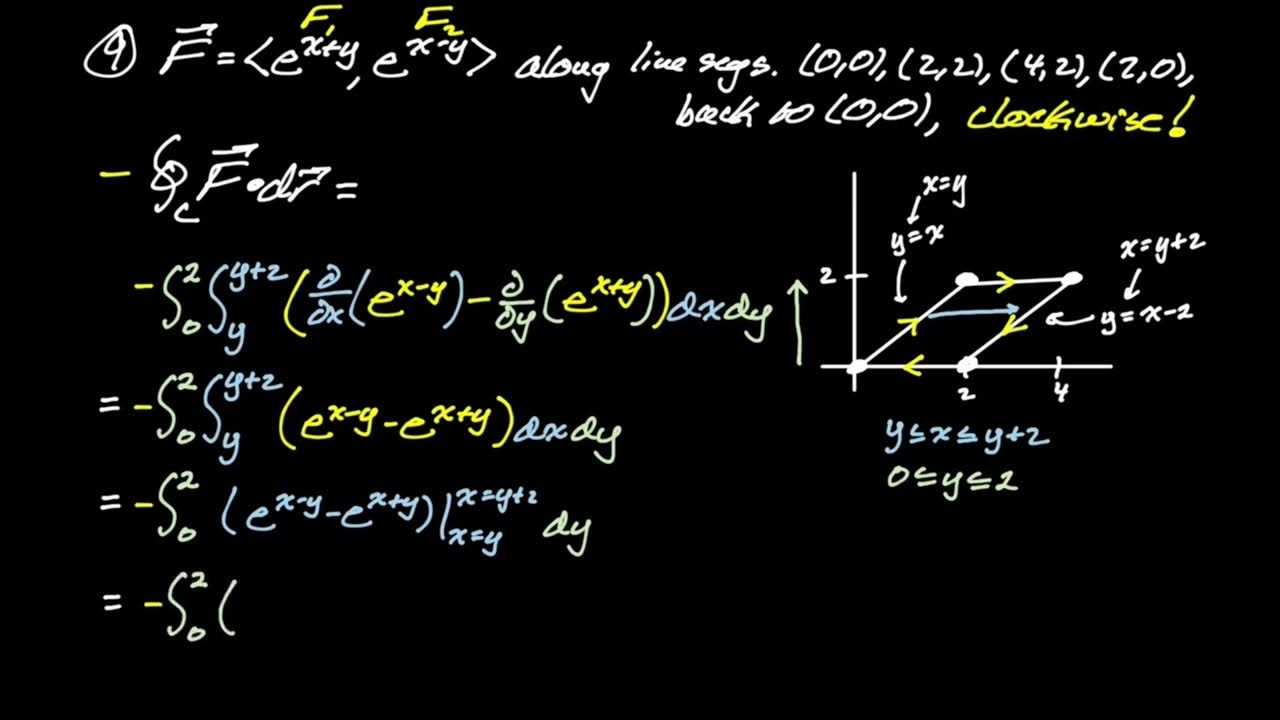 ⑨ F⃗ = ⟨e^{x+y}, e^{x-y}⟩ along line segs. (0,0), (2,2), (4,2), (2,0),
F₁ F₂
back to (0,0), clockwise!
- ∮_C F⃗ • dr⃗ =
-∫₀² ∫_y^{y+2} (∂/∂x (e^{x-y}) - ∂/∂y (e^{x+y})) dx dy
= -∫₀² ∫_y^{y+2} (e^{x-y} - e^{x+y}) dx dy
= -∫₀² (e^{x-y} - e^{x+y}) |_{x=y}^{x=y+2} dy
= -∫₀² (
x=y
y=x
x=y+2
y=x-2
2
2 4
y ≤ x ≤ y+2
0 ≤ y ≤ 2